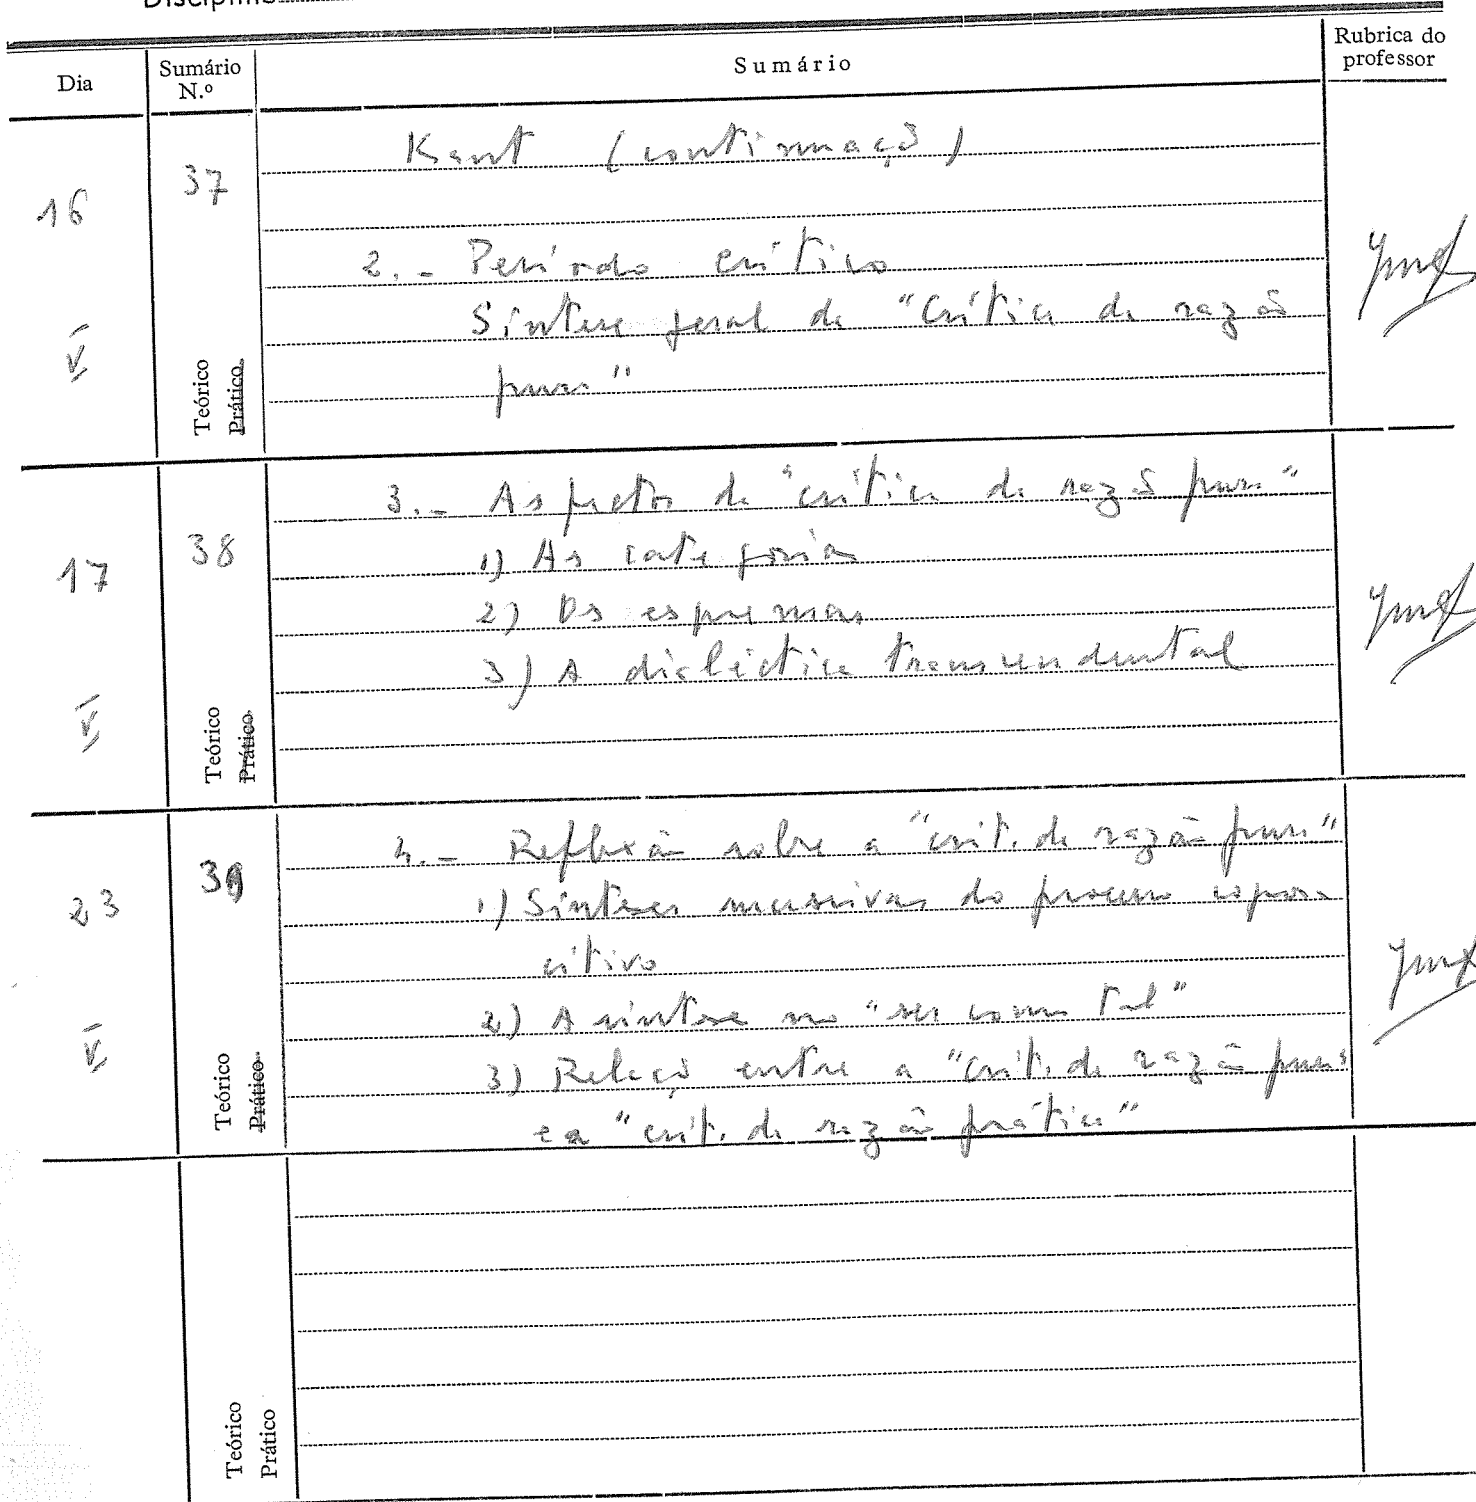 Dia
Sumário
N.º
Sumário
Rubrica do
professor
16
V
37
Teórico
Prático
Kant (continuação)
2.- Período crítico
Síntese geral da "Crítica da razão
pura"
17
V
38
Teórico
Prático
3.- Aspectos da "crítica da razão pura"
1) As categorias
2) Os esquemas
3) A dialéctica transcendental
23
V
39
Teórico
Prático
4.- Reflexão sobre a "crít. da razão pura"
1) Sínteses sucessivas do processo cognos
citivo
2) A síntese no "ser como tal"
3) Relação entre a "crít. da razão pura"
e a "crít. da razão prática"
Teórico
Prático